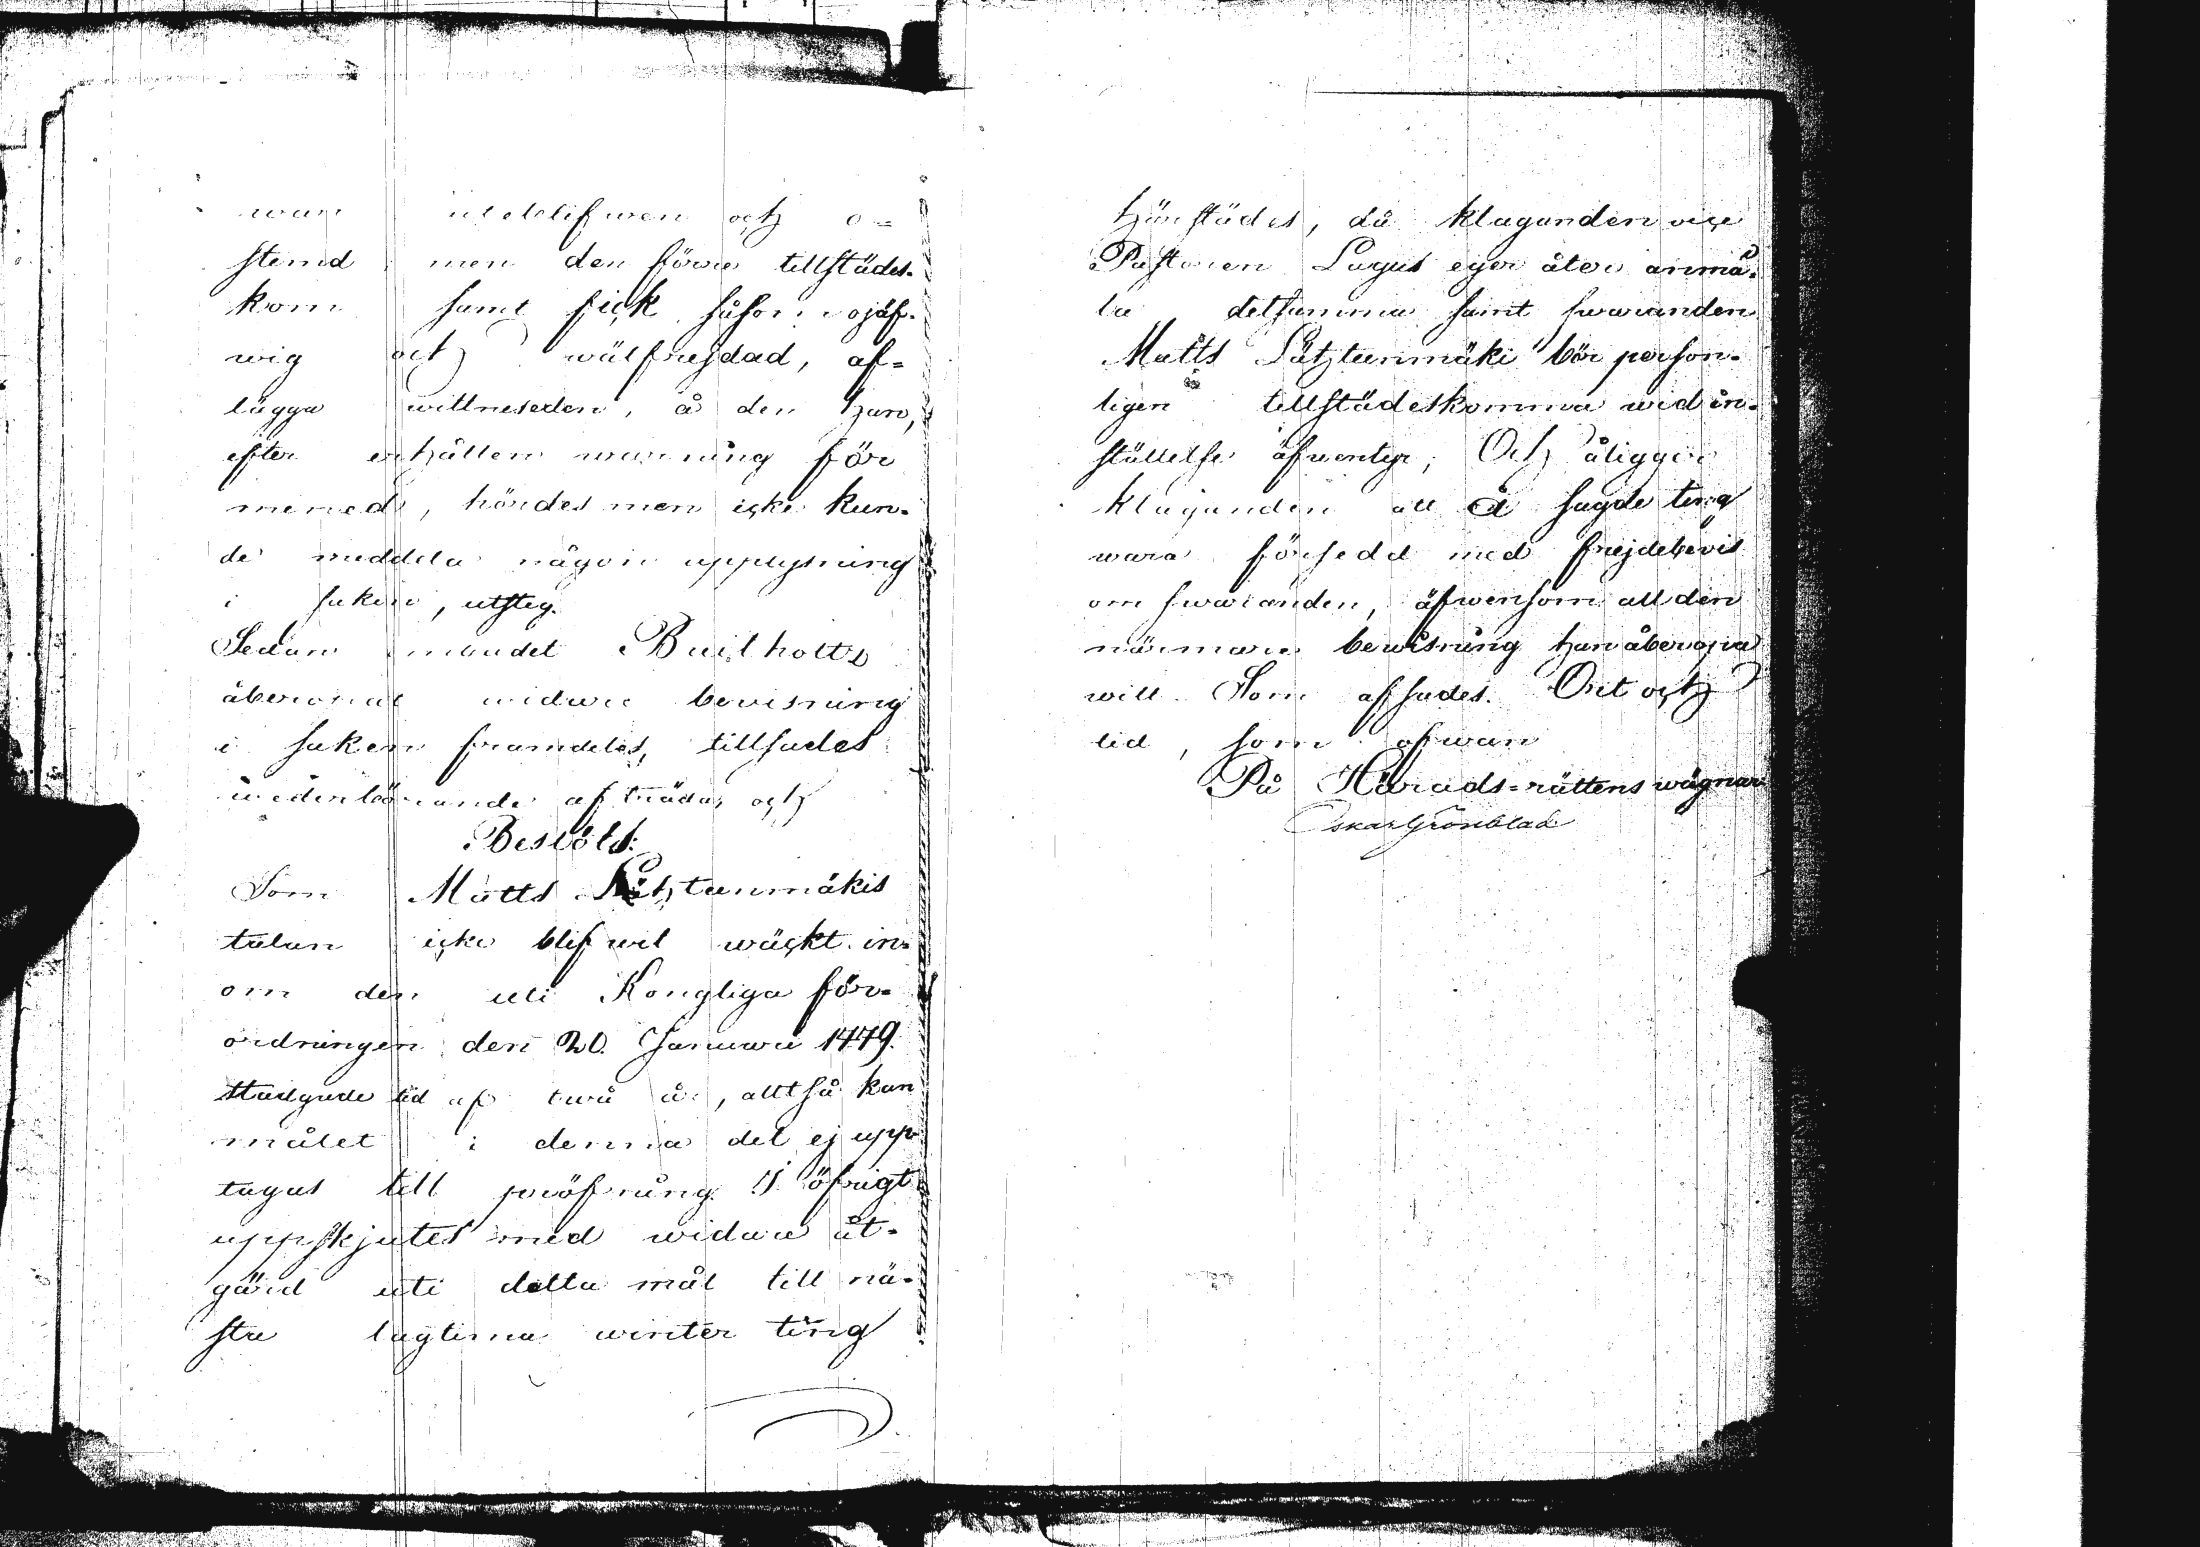 war uteblifwen och o-
stemd men den förre tillstädes-
kom samt fick såsom ojäf-
wig och wälfrejdad, af-
lägga wittneseden, å den han,
efter erhållen warning för
mened, hördes men icke kun-
de meddela någon upplysning
i saken, utsteg.
Sedan ombudet Builholtz
åberopat widare bevisning
i saken framdeles, tillsades
wederbörande afträda, och
Beslöts:
Som Matts Lähteenmäkis
talan icke blifwit wäckt in-
om den uti Kongliga för-
ordningen den 20 Januari 1779
stadgade tid af twå år, alltså kan
målet i denna del ej upp-
tagas till pröfning. I öfrigt
uppskjutes med widare åt-
gärd uti detta mål till nä-
sta lagtima winter ting
härstädes, då klaganden vice
Pastoren Lagus eger åter anmä-
la detsamma samt swaranden
Matts Lähteenmäki bör person-
ligen tillstädeskomma wid in-
ställelse äfwentyr; Och åligger
klaganden att å sagde ting
wara försedd med frejdebevis
om swaranden, äfwensom all den
närmare bewisning han åberopa
will. Som afsades. Ort och
tid, som ofwan
På Härads-rättens wägnar
Oskar Grönblad